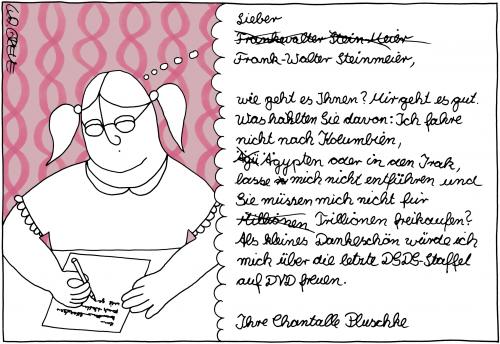 Sieber
Frankewalter Stein-Meier
Frank-Walter Steinmeier,
wie geht es Ihnen? Mir geht es gut.
Was hahlten Sie davon: Ich fahre
nicht nach Kolumbien,
Ägypten oder in den Irak,
lasse mich nicht entführen und
Sie müssen mich nicht für
Millionen Trillionen freikaufen?
Als kleines Dankeschön würde ich
mich über die letzte DSDS-Staffel
auf DVD freuen.
Ihre Chantalle Pluschke